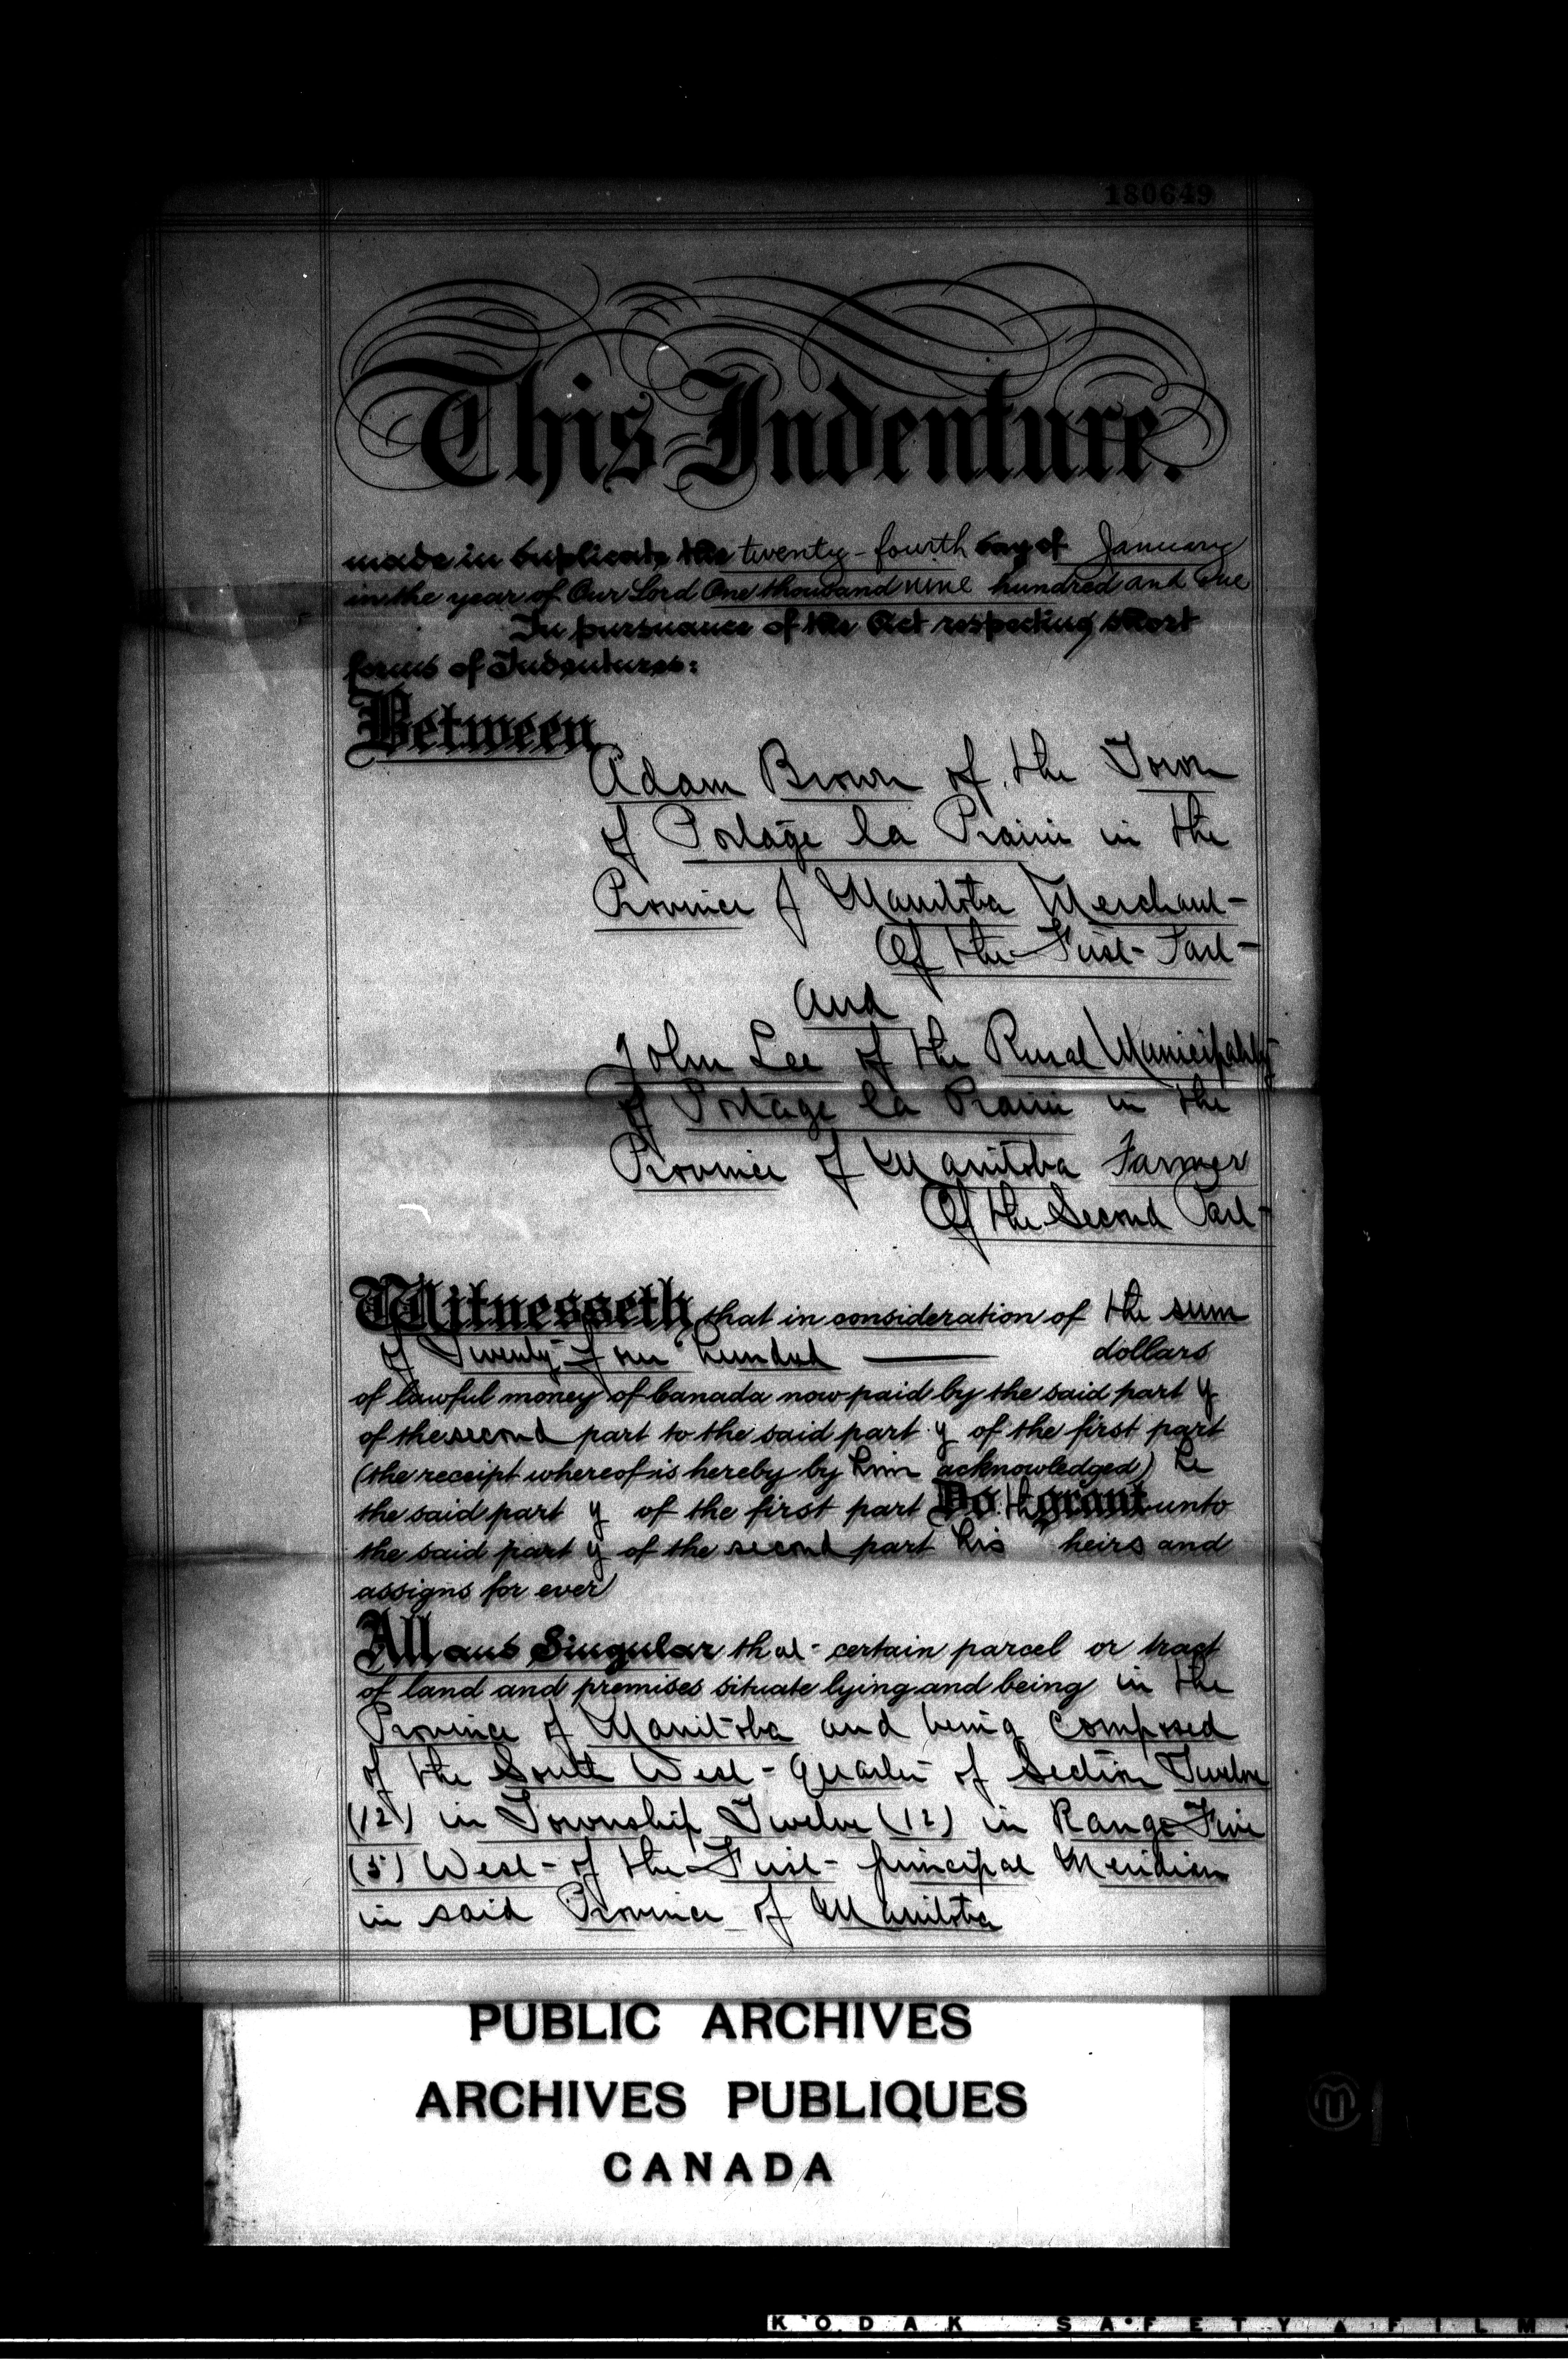 180649
This Indenture.
made in duplicate the twenty-fourth day of January
in the year of Our Lord One thousand nine hundred and one
In pursuance of the Act respecting short
forms of Indentures:
Between
Adam Brown of the Town
of Portage la Prairie in the
Province of Manitoba Merchant-
Of the First-Part-
And
John Lee of the Rural Municipality
of Portage la Prairie in the
Province of Manitoba Farmer
Of the Second Part-
Witnesseth that in consideration of the sum
of Twenty-four hundred dollars
of lawful money of Canada now paid by the said party
of the second part to the said party of the first part
(the receipt whereof is hereby by him acknowledged) he
the said party of the first part Doth grant unto
the said party of the second part his heirs and
assigns for ever
All and Singular that-certain parcel or tract
of land and premises situate lying and being in the
Province of Manitoba and being composed
of the South West-quarter of Section Twelve
(12) in Township Twelve (12) in Range Five
(5) West-of the First-principal Meridian
in said Province of Manitoba
PUBLIC ARCHIVES
ARCHIVES PUBLIQUES
CANADA
KODAK SAFETY FILM